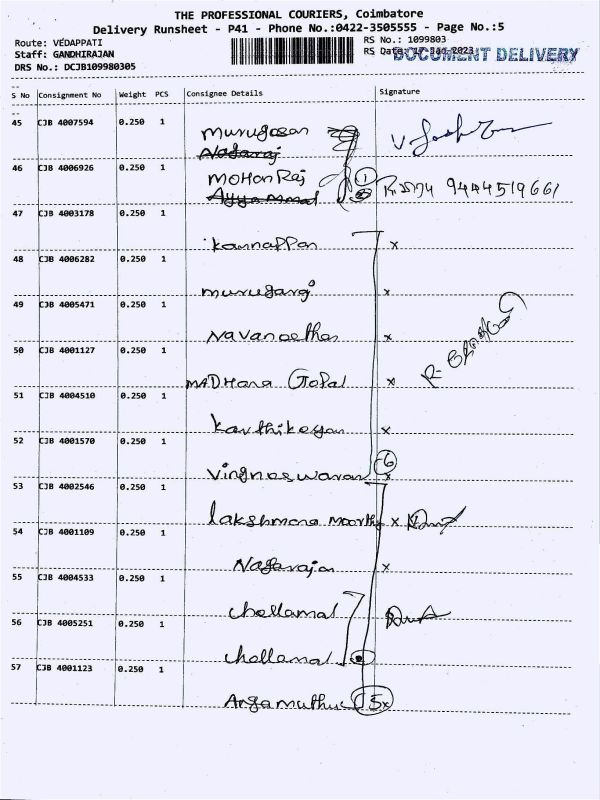 THE PROFESSIONAL COURIERS, Coimbatore
Delivery Runsheet - P41 - Phone No.:0422-3505555 - Page No.:5
Route: VEDAPPATI
RS No.: 1099803
Staff: GANDHIRAJAN
RS Date: 17 Jan 2023
DOCUMENT DELIVERY
DRS No.: DCJB109980305
S No Consignment No Weight PCS Consignee Details Signature
45 CJB 4007594 0.250 1
Murugasan
Nagaraj
46 CJB 4006926 0.250 1
Mohan Raj 1
9444519661
47 CJB 4003178 0.250 1
Kannappan x
48 CJB 4006282 0.250 1
Murugaraj x
49 CJB 4005471 0.250 1
x
50 CJB 4001127 0.250 1
MADHana Gopal x
51 CJB 4004510 0.250 1
Karthikeyan x
52 CJB 4001570 0.250 1
Vingneswaran 6 x
53 CJB 4002546 0.250 1
lakshmana moorthy x
54 CJB 4001109 0.250 1
Nagarajan x
55 CJB 4004533 0.250 1
chellamal
56 CJB 4005251 0.250 1
chellamal
57 CJB 4001123 0.250 1
Angamuthu 5x